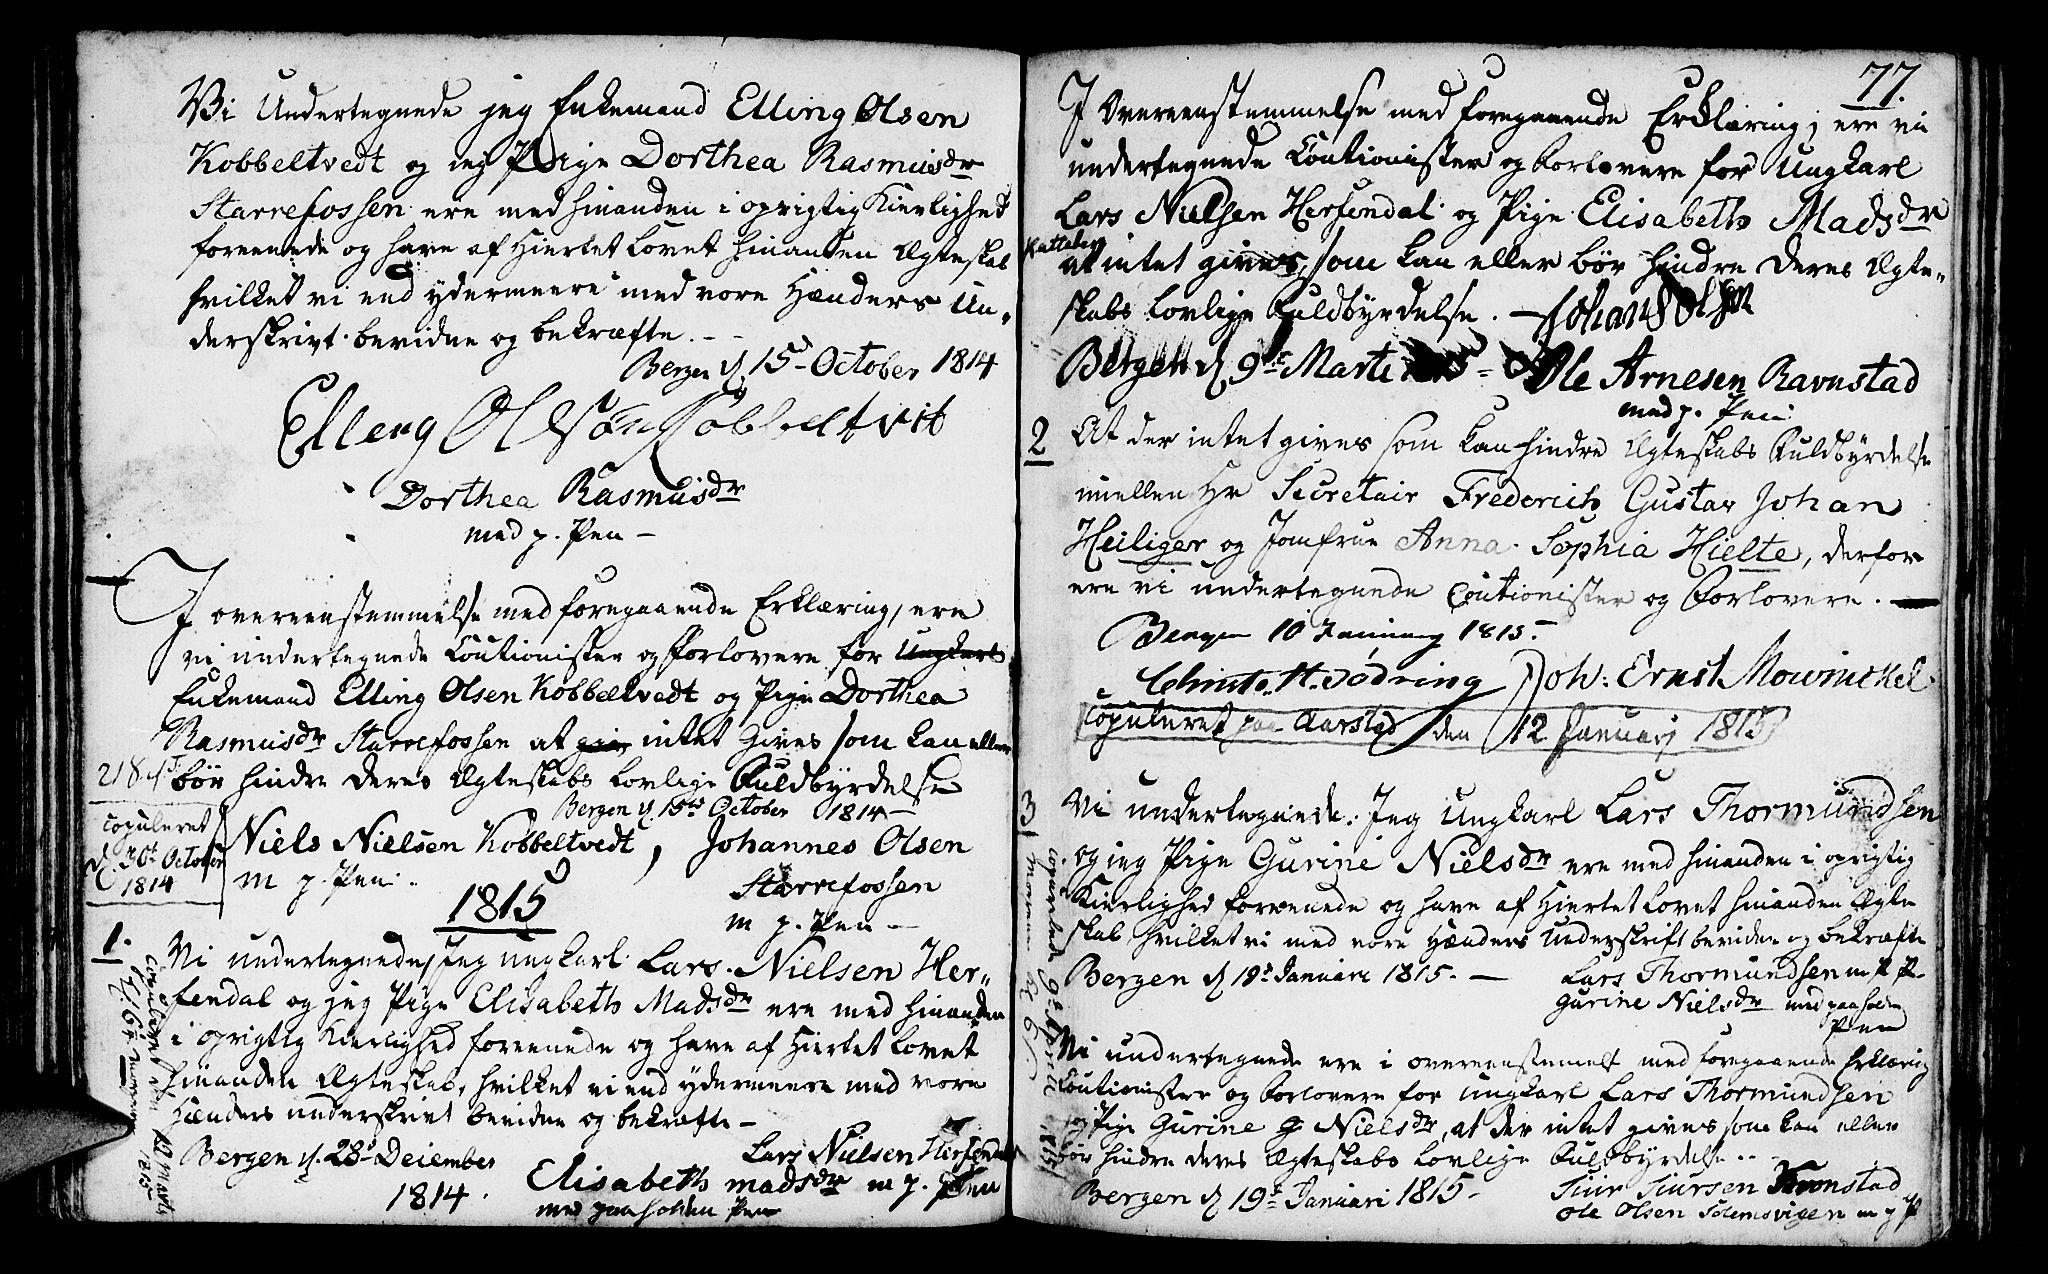 Vi Undertegnede jeg Enkemand Elling Olsen
Kobbeltvedt og jeg Pige Dorthea Rasmusdr
Starrefossen ere med hinanden i oprigtig Kierlighed
foreenede og have af Hiertet lovet hinanden Ægteskab
hvilket vi end ydermeere med vore Hænders Un„
derskrivt bevidne og bekræfte. -
Bergen d. 15d October 1814
Elleng Olsøn Kobbeltvit
Dorthea Rasmusdr
med p. Pen -
I overeenstemmelse med foregaaende Erklæring, ere
vi undertegnede Coutionister og Forlovere for Ungkarl
Enkemand Elling Olsen Kobbeltvedt og Pige Dorthea
Rasmusdr Starrefossen at giv intet gives som kan eller
bör hindre deres Ægteskabs lovlige Fuldbyrdelse
Bergen d. 15de October 1814 -
Niels Nielsen Kobbeltvedt, Johannes Olsen
m p. Pen. Starrefossen
m p. Pen -
copuleret
d 30t October
1814
1815
1.
Vi undertegnede, Jeg ungkarl Lars Nielsen Her„
fendal og jeg Pige Elisabeth Madsdr ere med hinanden
i oprigtig Kierlighed foreenede og have af Hiertet lovet
hinanden Ægteskab, hvilket vi end ydermeere med vore
Hænders underskrivt bevidne og bekræfte -
Bergen d. 28d December
1814.
Lars Nielsen Herfendal
Elisabeth madsdr m p. Pen
med paaholden Pen
copuleret den
1815
77.
I Overeenstemmelse med foregaaende Erklæring, ere vi
undertegnede Coutionister og Forlovere for Ungkarl
Lars Nielsen Herfendal og Pige Elisabeth Madsdr
at intet gives, som kan eller bör hindre deres Ægte„
skabs lovlige Fuldbyrdelse. - Johans Olsen
Bergen d 9t Marti - Ole Arnesen Ravnstad
med p. Pen
2
At der intet gives som kan hindre Ægteskabs Fuldbyrdelse
imellem Hr Secretair Frederich Gustav Johan
Heiliger og Jomfrue Anna Sophia Hielte, derfor
ere vi undertegnede Coutionister og Forlovere. -
Bergen 10 Januarij 1815.
Christo. H. Dødring Joh: Ernst Mowinckel
copuleret paa Aarstad den 12 Januarj 1815
3
Vi undertegnede. Jeg Ungkarl Lars Thormundsen
og jeg Pige Gurine Nielsdr ere med hinanden i oprigtig
Kierlighed foreenede og have af Hiertet lovet hinanden Ægte
skab, hvilket vi med vore Hænders Underskrift bevidne og bekræfte
Bergen d 19t Januari 1815. - Lars Thormundsen m P P.
Gurine Nielsdr med paaholden
Pen
copulerede 9t April 1815
Vi undertegnede ere i overeenstemelse med foregaaende Erklæring
Coutionister og Forlovere for Ungkarl Lars Thormundsen
og Pige Gurine G Nielsdr, at der intet gives som kan eller
bör hindre deres Ægteskabs lovlige Fuldbyrdelse -
Bergen d 19t Januari 1815 - Siur Siursen Kronstad
Ole Olsen Solemsvigen m p P